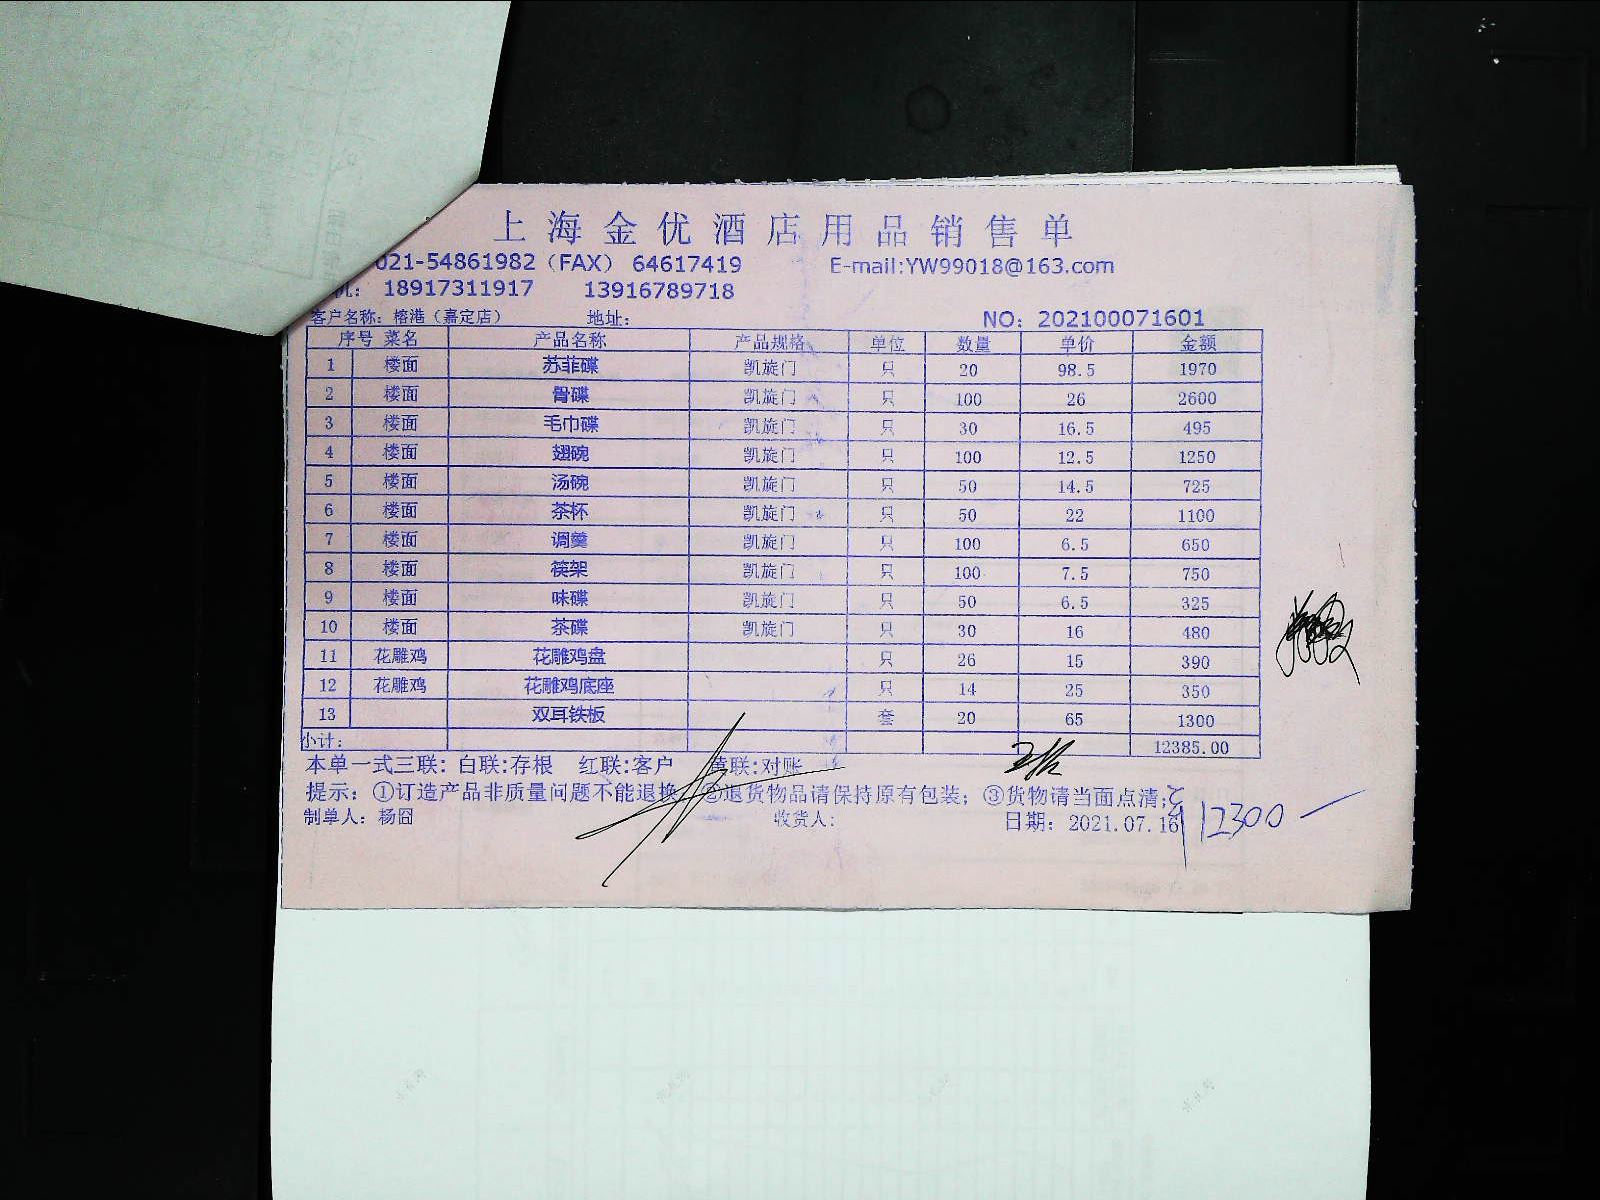 上海金优酒店用品销售单
021-54861982（FAX） 64617419 E-mail:YW99018@163.com
机： 18917311917 13916789718
客户名称：榕港（嘉定店） 地址： NO：202100071601
序号 菜名 产品名称 产品规格 单位 数量 单价 金额
1 楼面 苏菲碟 凯旋门 只 20 98.5 1970
2 楼面 骨碟 凯旋门 只 100 26 2600
3 楼面 毛巾碟 凯旋门 只 30 16.5 495
4 楼面 翅碗 凯旋门 只 100 12.5 1250
5 楼面 汤碗 凯旋门 只 50 14.5 725
6 楼面 茶杯 凯旋门 只 50 22 1100
7 楼面 调羹 凯旋门 只 100 6.5 650
8 楼面 筷架 凯旋门 只 100 7.5 750
9 楼面 味碟 凯旋门 只 50 6.5 325
10 楼面 茶碟 凯旋门 只 30 16 480
11 花雕鸡 花雕鸡盘 只 26 15 390
12 花雕鸡 花雕鸡底座 只 14 25 350
13 双耳铁板 套 20 65 1300
小计： 12385.00
本单一式三联：白联:存根 红联:客户 黄联:对账
提示：①订造产品非质量问题不能退换 ②退货物品请保持原有包装；③货物请当面点清;
制单人：杨囧 收货人： 日期：2021.07.16 12300